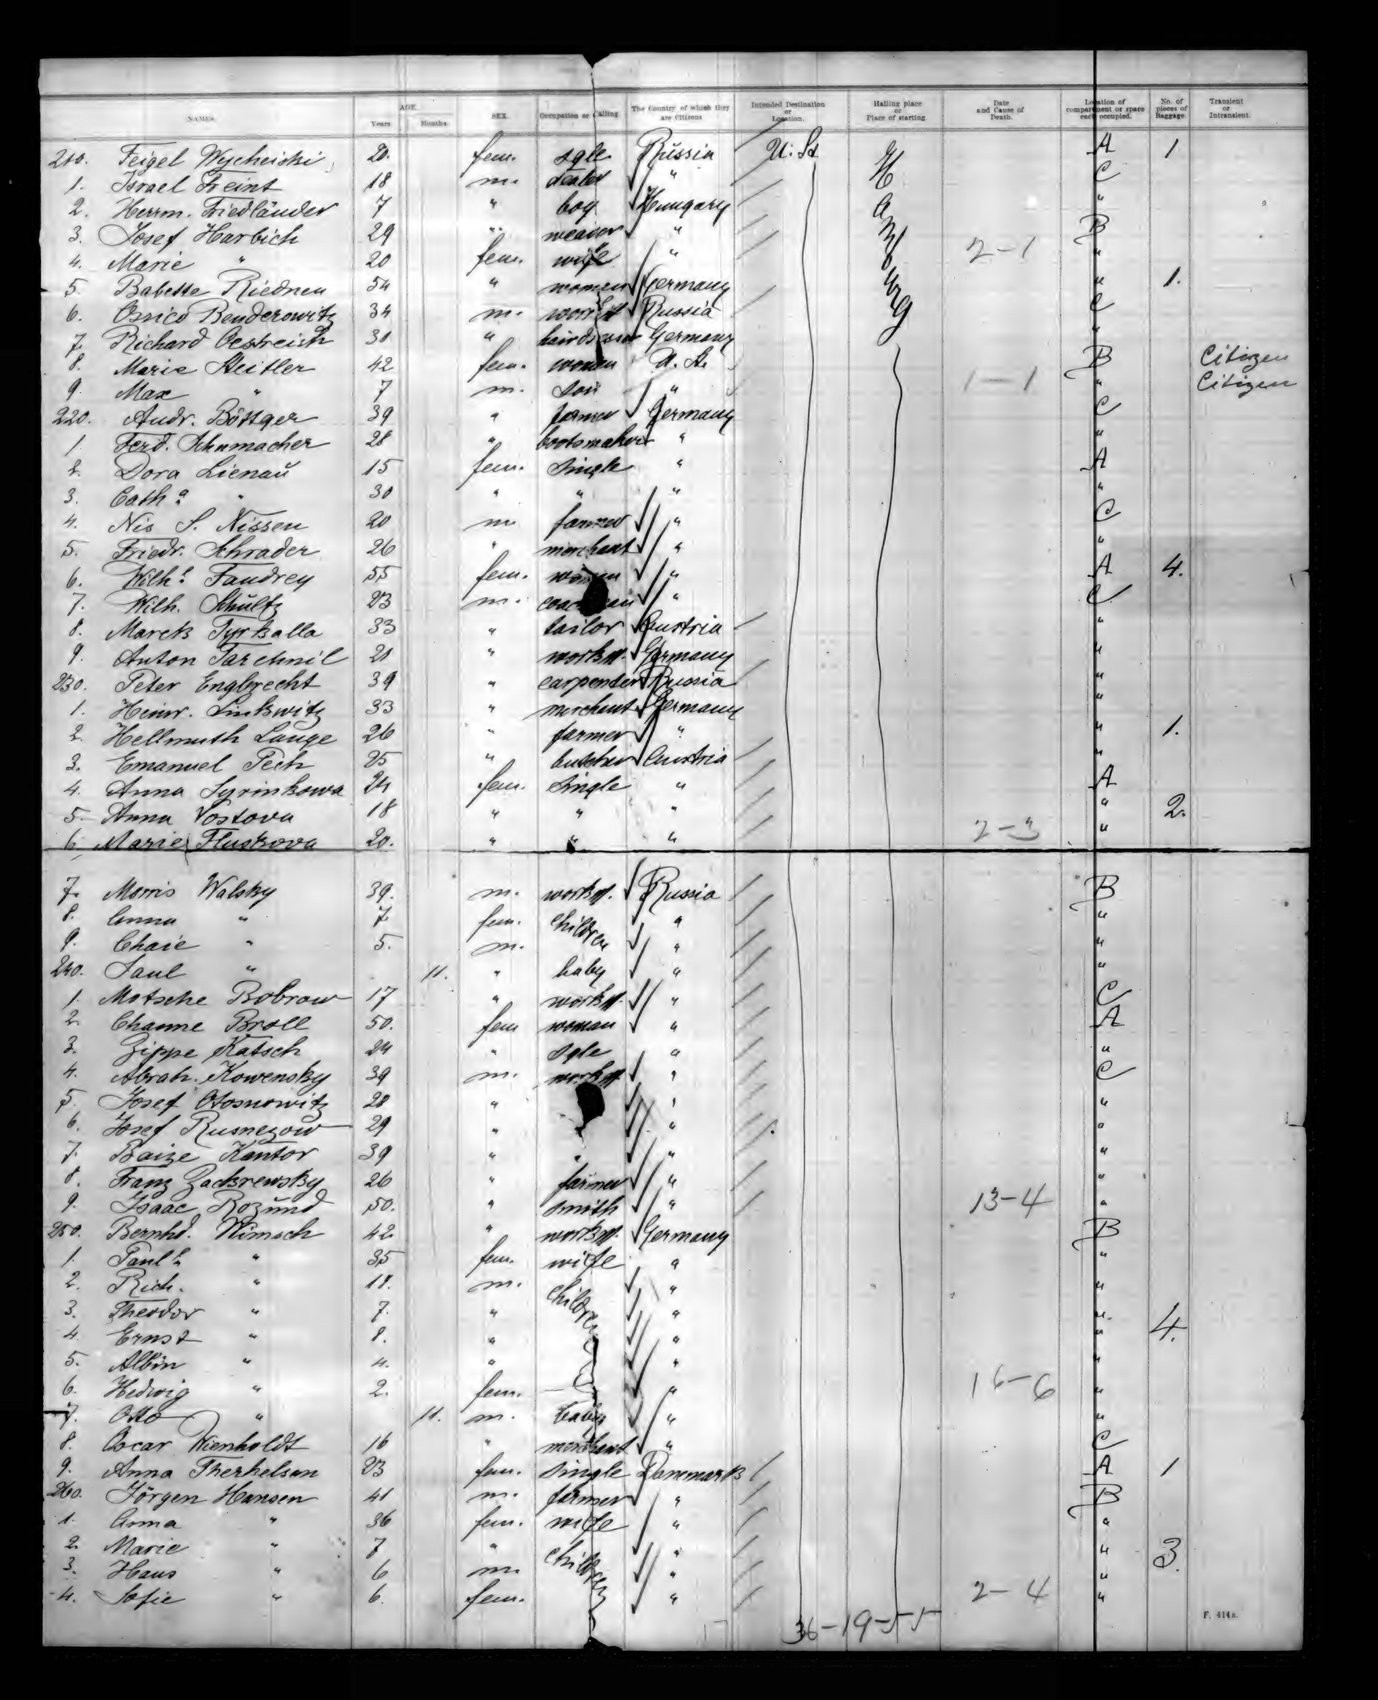 NAMES. AGE. Years Months. SEX. Occupation or Calling The Country of which they are Citizens Intended Destination or Location. Hailing place or Place of starting Date and Cause of Death. Location of compartment or space each occupied. No. of pieces of Baggage. Transient or Intransient.
210. Feigel 20. fem. sgle. Russia U. St. Hamburg A 1
1. Israel Freint 18 m. dealer " C
2. Herrm. Friedländer 7 " boy Hungary "
3. Josef Harbich 29 " weaver " B
4. Marie " 20 fem. wife " 2-1 "
5. Babette Riednen 54 " women Germany " 1.
6. Benderowitz 34 m. Russia C
7. Richard Oestreich 30 " Germany "
8. Marie Heitler 42 fem. woman U. St. B Citizen
9. Max " 7 m. son " 1-1 " Citizen
220. Andr. Böttger 39 " farmer Germany C
1. Ferd. Schumacher 28 " bootsmaker " "
2. Dora Lienau 15 fem. single " A
3. Cath.a " 30 " " " "
4. Nis S. Nissen 20 m. farmer " C
5. Friedr. Schrader 26 " merchant " "
6. Wilh.e Faudrey 55 fem. woman " A 4.
7. Wilh. Schultz 23 m. " C
8. Marek Tyrkalla 33 " tailor Austria "
9. Anton 21 " workm. Germany "
230. Peter Engbrecht 39 " carpender Russia "
1. Heinr. Linkwitz 33 " merchant Germany "
2. Hellmuth Lange 26 " farmer " " 1.
3. Emanuel Pech 25 " butcher Austria "
4. Anna Syrinkowa 24 fem. single " A
5. Anna Vostova 18 " " " " 2.
6. Marie Fluskova 20. " " " 2-3 "
7. Morris Walsky 39. m. workm. Russia B
8. Anna " 7 fem. children " "
9. Chaie " 5. m. " "
240. Saul " 11. " baby " "
1. Motsche Bobrow 17 " workm. " C
2. Channe Broll 50. fem woman " A
3. Zippe Katsch 24 " sgle " "
4. Abrah. Kowensky 39 m. workm " C
5. Josef 20 " " "
6. Josef Rusnezow 29 " " "
7. Baize Kantor 39 " " " "
8. Franz Zackrewsky 26 " farmer " "
9. Isaac Rozund 50. " smith " 13-4 "
250. Bernhd. Wimsch 42 " workm. Germany B
1. Paul.e " 35 fem. wife " "
2. Rich. " 11. m. children " "
3. Theodor " 7. " " "
4. Ernst " 8. " " " 4.
5. Albin " 4. " " "
6. Hedwig " 2. fem. " 16-6 "
7. Otto " 11. m. baby " "
8. Oscar Wienholdt 16 " merchant " C
9. Anna Therkelsen 23 fem. single Danmark A 1
260. Jörgen Hansen 41 m. farmer " B
1. Anna " 36 fem. wife " "
2. Marie " 7 " children " " 3.
3. Hans " 6 m. " "
4. Sofie " 6. fem. " 2-4 "
36-19-55
F. 414a.